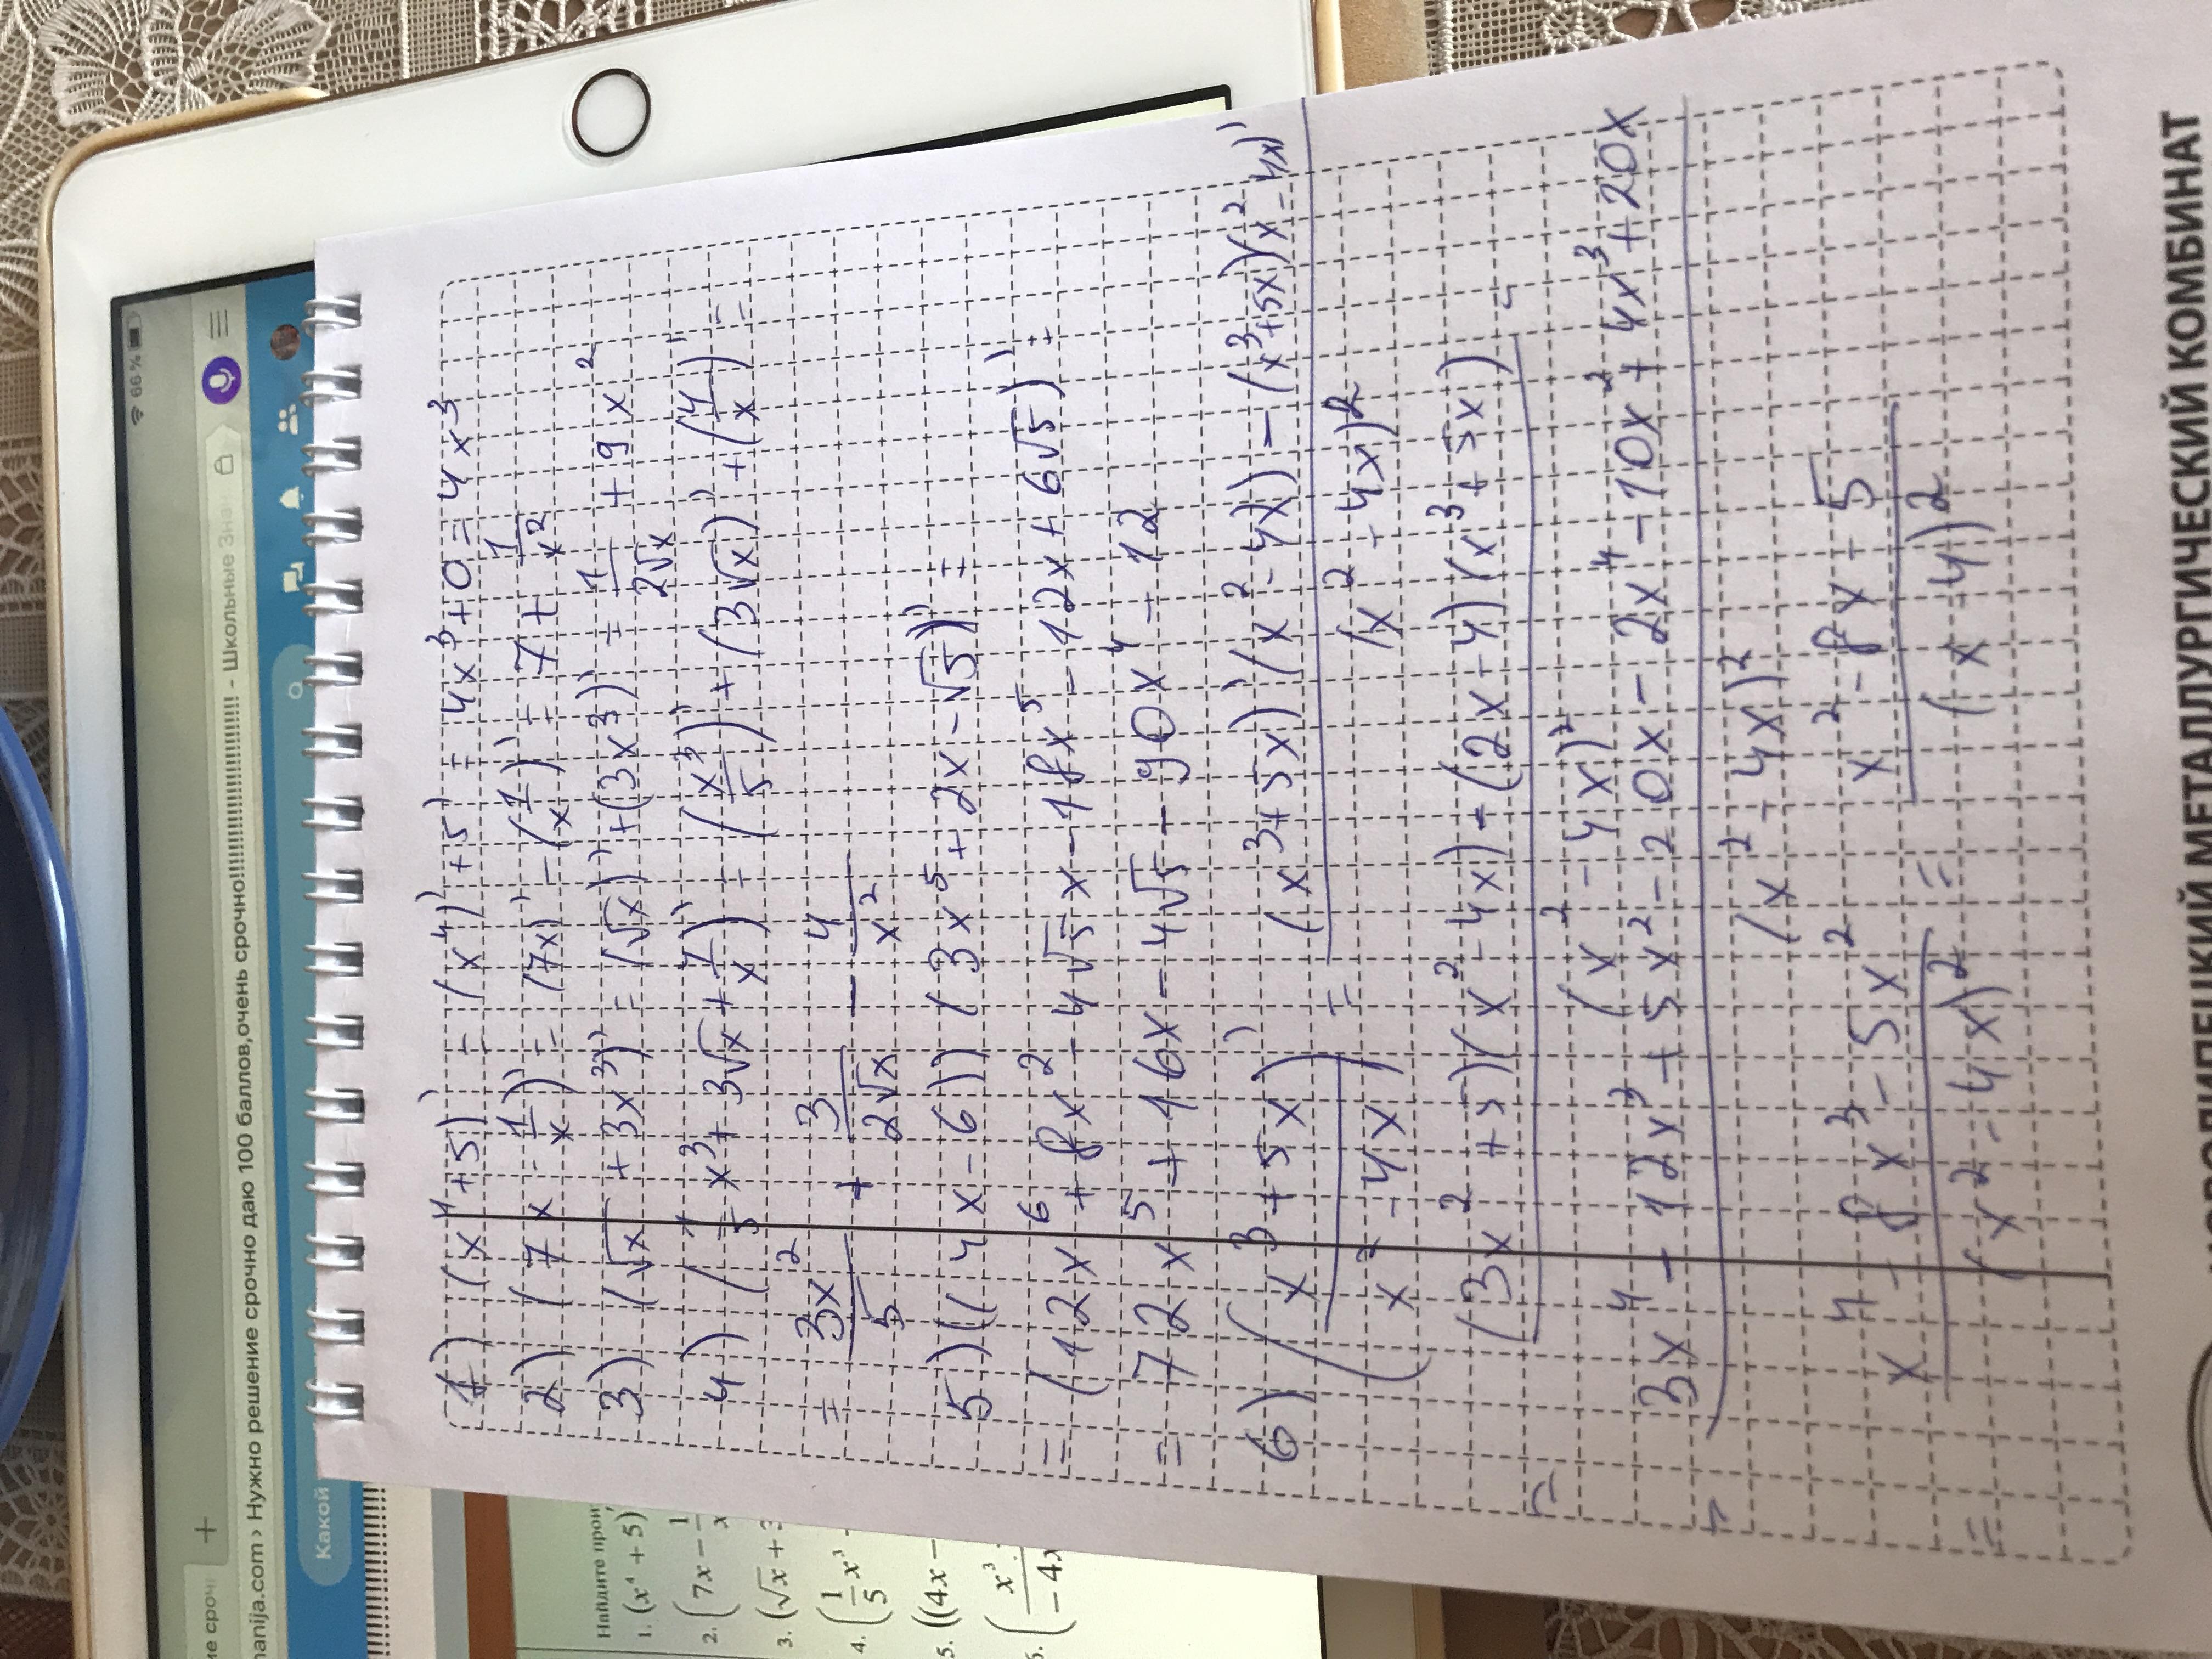 66 %
ие сроч
+
nanija.com › Нужно решение срочно даю 100 баллов,очень срочно!!!!!!!!!!!!!!!!!!!!!!!!!!!!!! - Школьные Знан
Какой
Найдите прои
1. (x⁴ + 5)
2. (7x − 1/x
3. (√x + 3
4. (1/5 x³ -
5. ((4x −
6. (x³ / − 4x
1) (x⁴+5)' = (x⁴)'+5)' = 4x³+0=4x³
2) (7x - 1/x)' = (7x)' - (1/x)' = 7 + 1/x²
3) (√x + 3x³)' = (√x)' + (3x³)' = 1/2√x + 9x²
4) (1/5 x³ + 3√x + 4/x)' = (x³/5)' + (3√x)' + (4/x)' =
= 3x²/5 + 3/2√x - 4/x²
5) ((4x-6)) (3x⁵+2x-√5))' =
= (12x⁶ + 8x² - 4√5x - 18x⁵ - 12x + 6√5)' =
= 72x⁵ + 16x - 4√5 - 90x⁴ - 12
6) (x³+5x / x²-4x)' = (x³+5x)'(x²-4x) - (x³+5x)(x²-4x)' / (x²-4x)²
= (3x²+5)(x²-4x) - (2x-4)(x³+5x) / (x²-4x)² =
= 3x⁴-12x³+5x²-20x-2x⁴-10x²+4x³+20x / (x²-4x)²
= x⁴-8x³-5x² / (x²-4x)² = x²-8x-5 / (x-4)²
МЕТАЛЛУРГИЧЕСКИЙ КОМБИНАТ